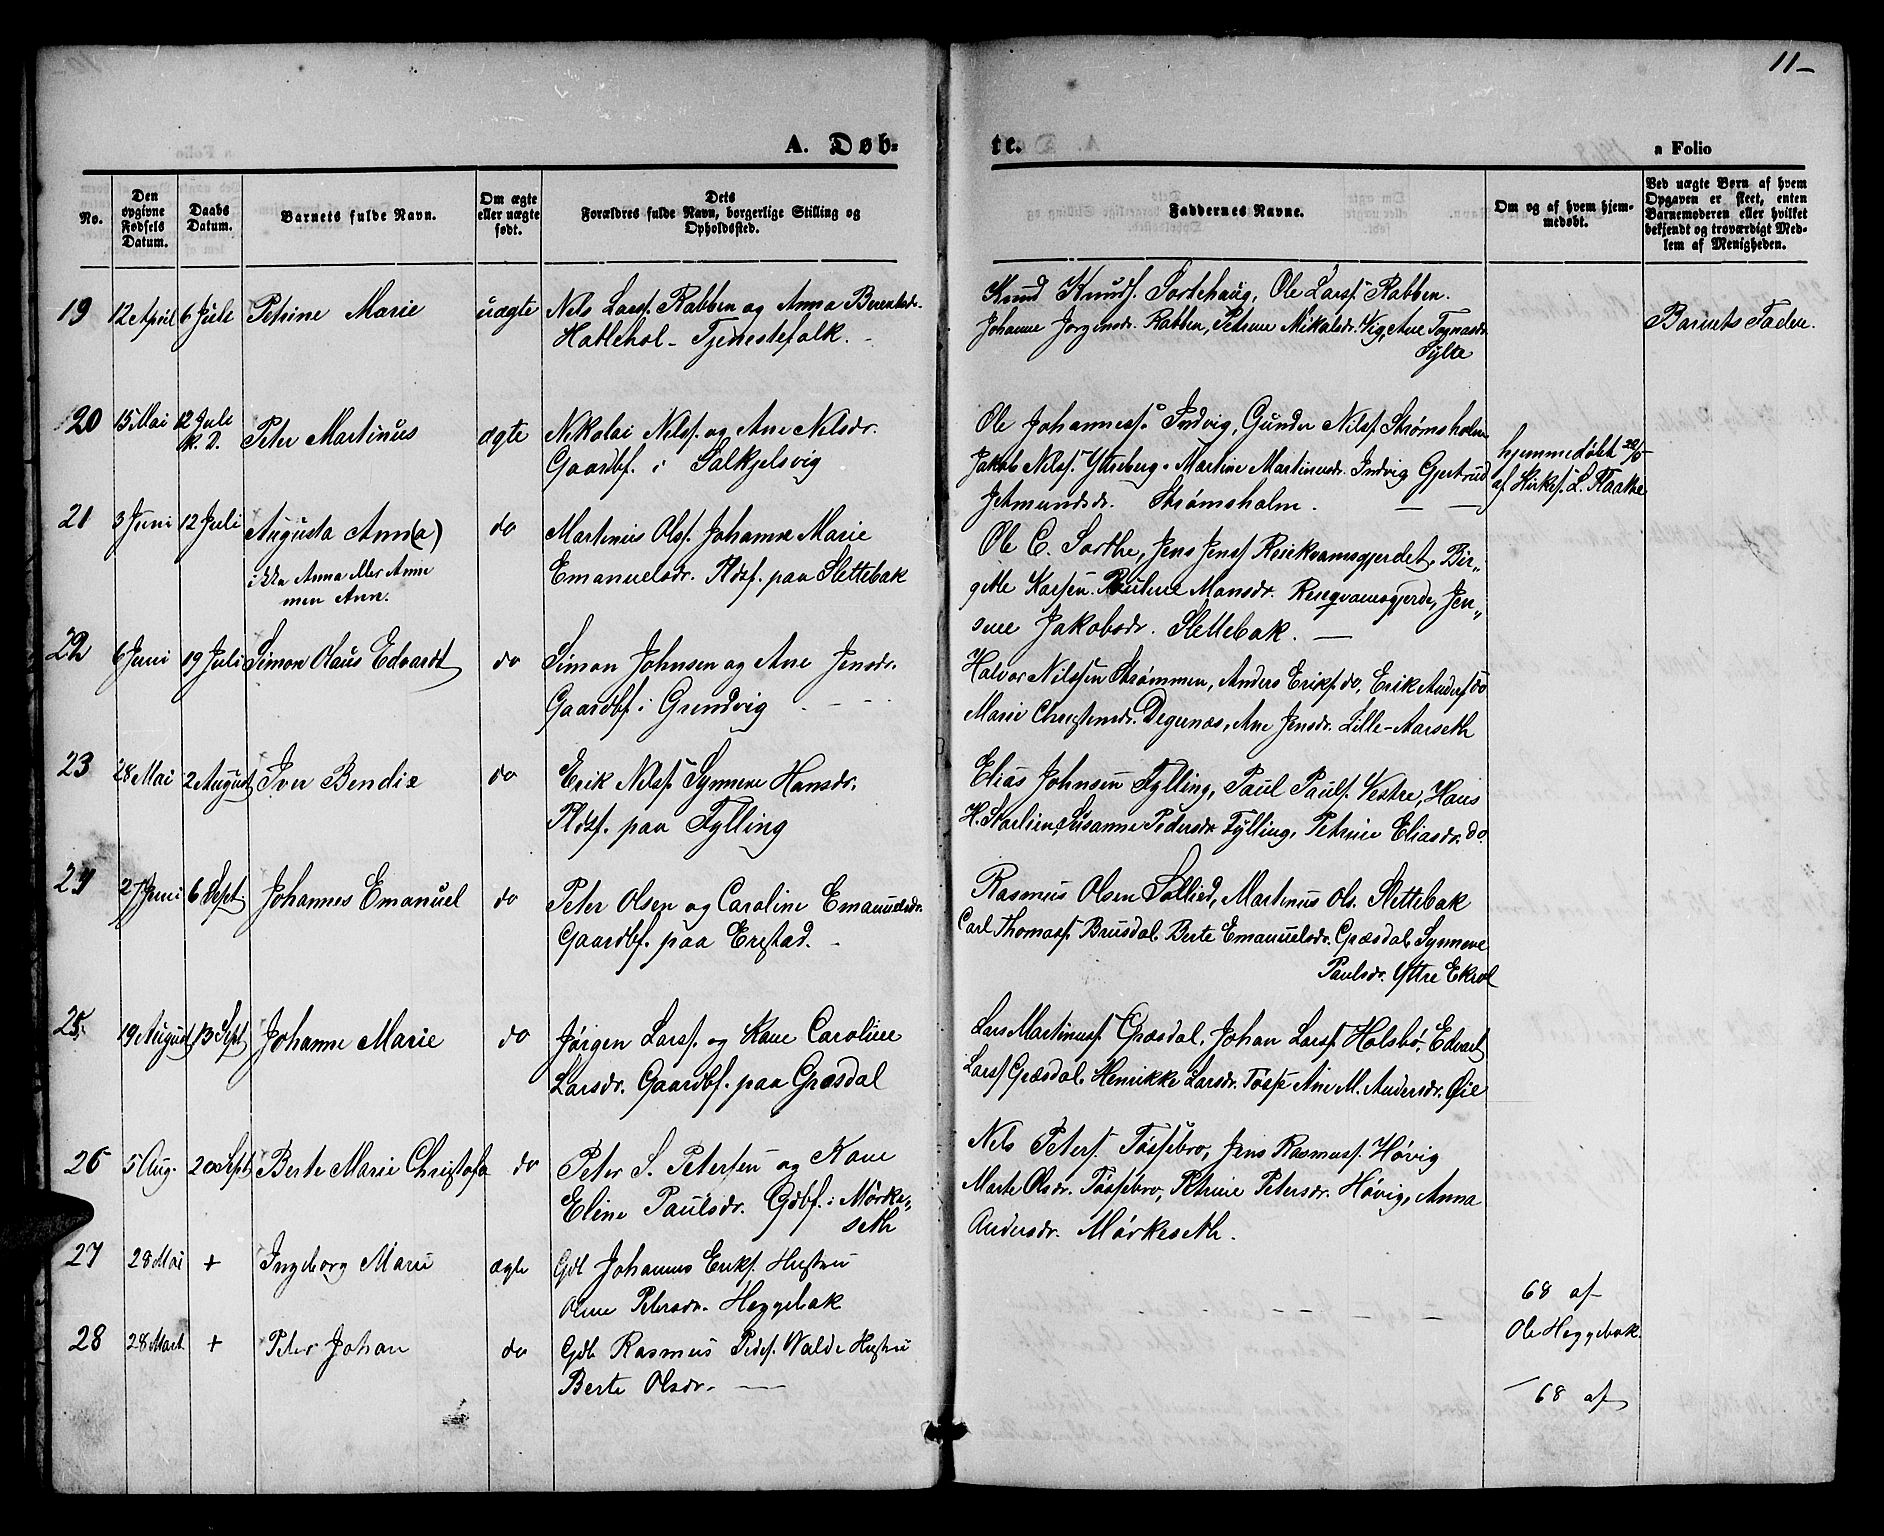 11-
A. Døb-
te.
a Folio
No.
Den opgivne Fødsels Datum.
Daabs Datum.
Barnets fulde Navn.
Om ægte eller uægte født.
Dets Forældres fulde Navn, borgerlige Stilling og Opholdssted.
Faddernes Navne.
Om og af hvem hjemmedøbt.
Ved uægte Børn af hvem Opgaven er skeet, enten Barnemoderen eller hvilket bekjendt og troværdigt Medlem af Menigheden.
19 12 April 6 Juli Petrine Marie uægte Nils Larss. Rabben og Anna Berentsdr.
Hatlehol - Tjenestefolk. -
Knud Knuds. Sortehaug, Ole Larss. Rabben.
Johanne Jørgensdr. Rabben, Petrine Nikolsdr. Vig, Ane
Sylte
Barnets Fader.
20 15 Mai 12 Juli Peter Martinus ægte Nikolai Nilss. og Ane Nilsdr.
K. D.
Gaardbf. i Solkjelsvig
Ole Johanness. Indvig, Gunder Nilss. Strømsholm
Jakob Nilss. Ytreberg, Martine Martinusdr. Indvig Gjertrud
Jetmundsdr. Strømsholm. — —
hjemmedøbt 20/5
af Kirkes. L. Flaathe
21 3 Juni 12 Juli Augusta Ann(a) do Martinus Ols. Johanne Marie
ikke Anna eller Anne
men Ann.
Emanuelsdr. Pldsf. paa Slettebak
Ole C. Sorthe, Jens Jenss. Risekvamsgjerdet, Bir-
gitte Karsen. Pauline Monsdr. Riseqvamsgjerde, Jen-
sine Jakobsdr. Slettebak. —
22 6 Juni 19 Juli Simon Olaus Edvardt do Simon Johnsen og Ane Jensdr.
Gaardbf. i Grindvig - - -
Halvor Nilssen Strømmen, Anders Eriks. do, Erik Anders. do
Marie Christensdr. Degernæs, Ane Jensdr. Lille-Aarseth
23 28 Mai 2 August Iver Bendix do Erik Nilss. Synneve Hansdr.
Pldsf. paa Fylling
Elias Johnsen Fylling, Paul Pauls. Vestre, Hans
H. Skarlien, Susanne Pedersdr. Fylling, Petrine Eliasdr. do.
24 27 Juni 6 Sept Johannes Emanuel do Peter Olsen og Caroline Emanuelsdr.
Gaardbf. paa Erestad. -
Rasmus Olsen Sollied, Martinus Ols. Slettebak
Carl Thomass. Brusdal, Berte Emanuelsdr. Græsdal, Synneve
Paulsdr. Yttre Ekrol
25. 19 August 13 Sept Johanne Marie do Jørgen Larss. og Kane Caroline
Larsdr. Gaardbf. paa Græsdal
Lars Martinuss. Græsdal, Johan Larss. Holsbø, Edvart
Larss. Græsdal, Henrikke Larsdr. Tosse, Ane M. Andersdr. Øie
26 5 Aug. 20 Sept Berte Marie Christofa do Peter S. Petersen og Kane
Eline Pauls­dr. Gdbf. i Mørke-
seth
Nils Peters. Tøssebro, Jens Rasmuss. Høvig
Marte Olsdr. Tøssebro, Petrine Petersdr. Høvig, Anna
Andersdr. Mørkeseth.
27 28 Mai + Ingeborg Marie ægte Gdb Johannes Eriks. Hustru
Oline Petersdr. Heggebak
68 af
Ole Heggebak.
28 28 Mart + Peter Johan do Gdb Rasmus Peders. Walde Hustru
Berte Olsdr. —
68 af